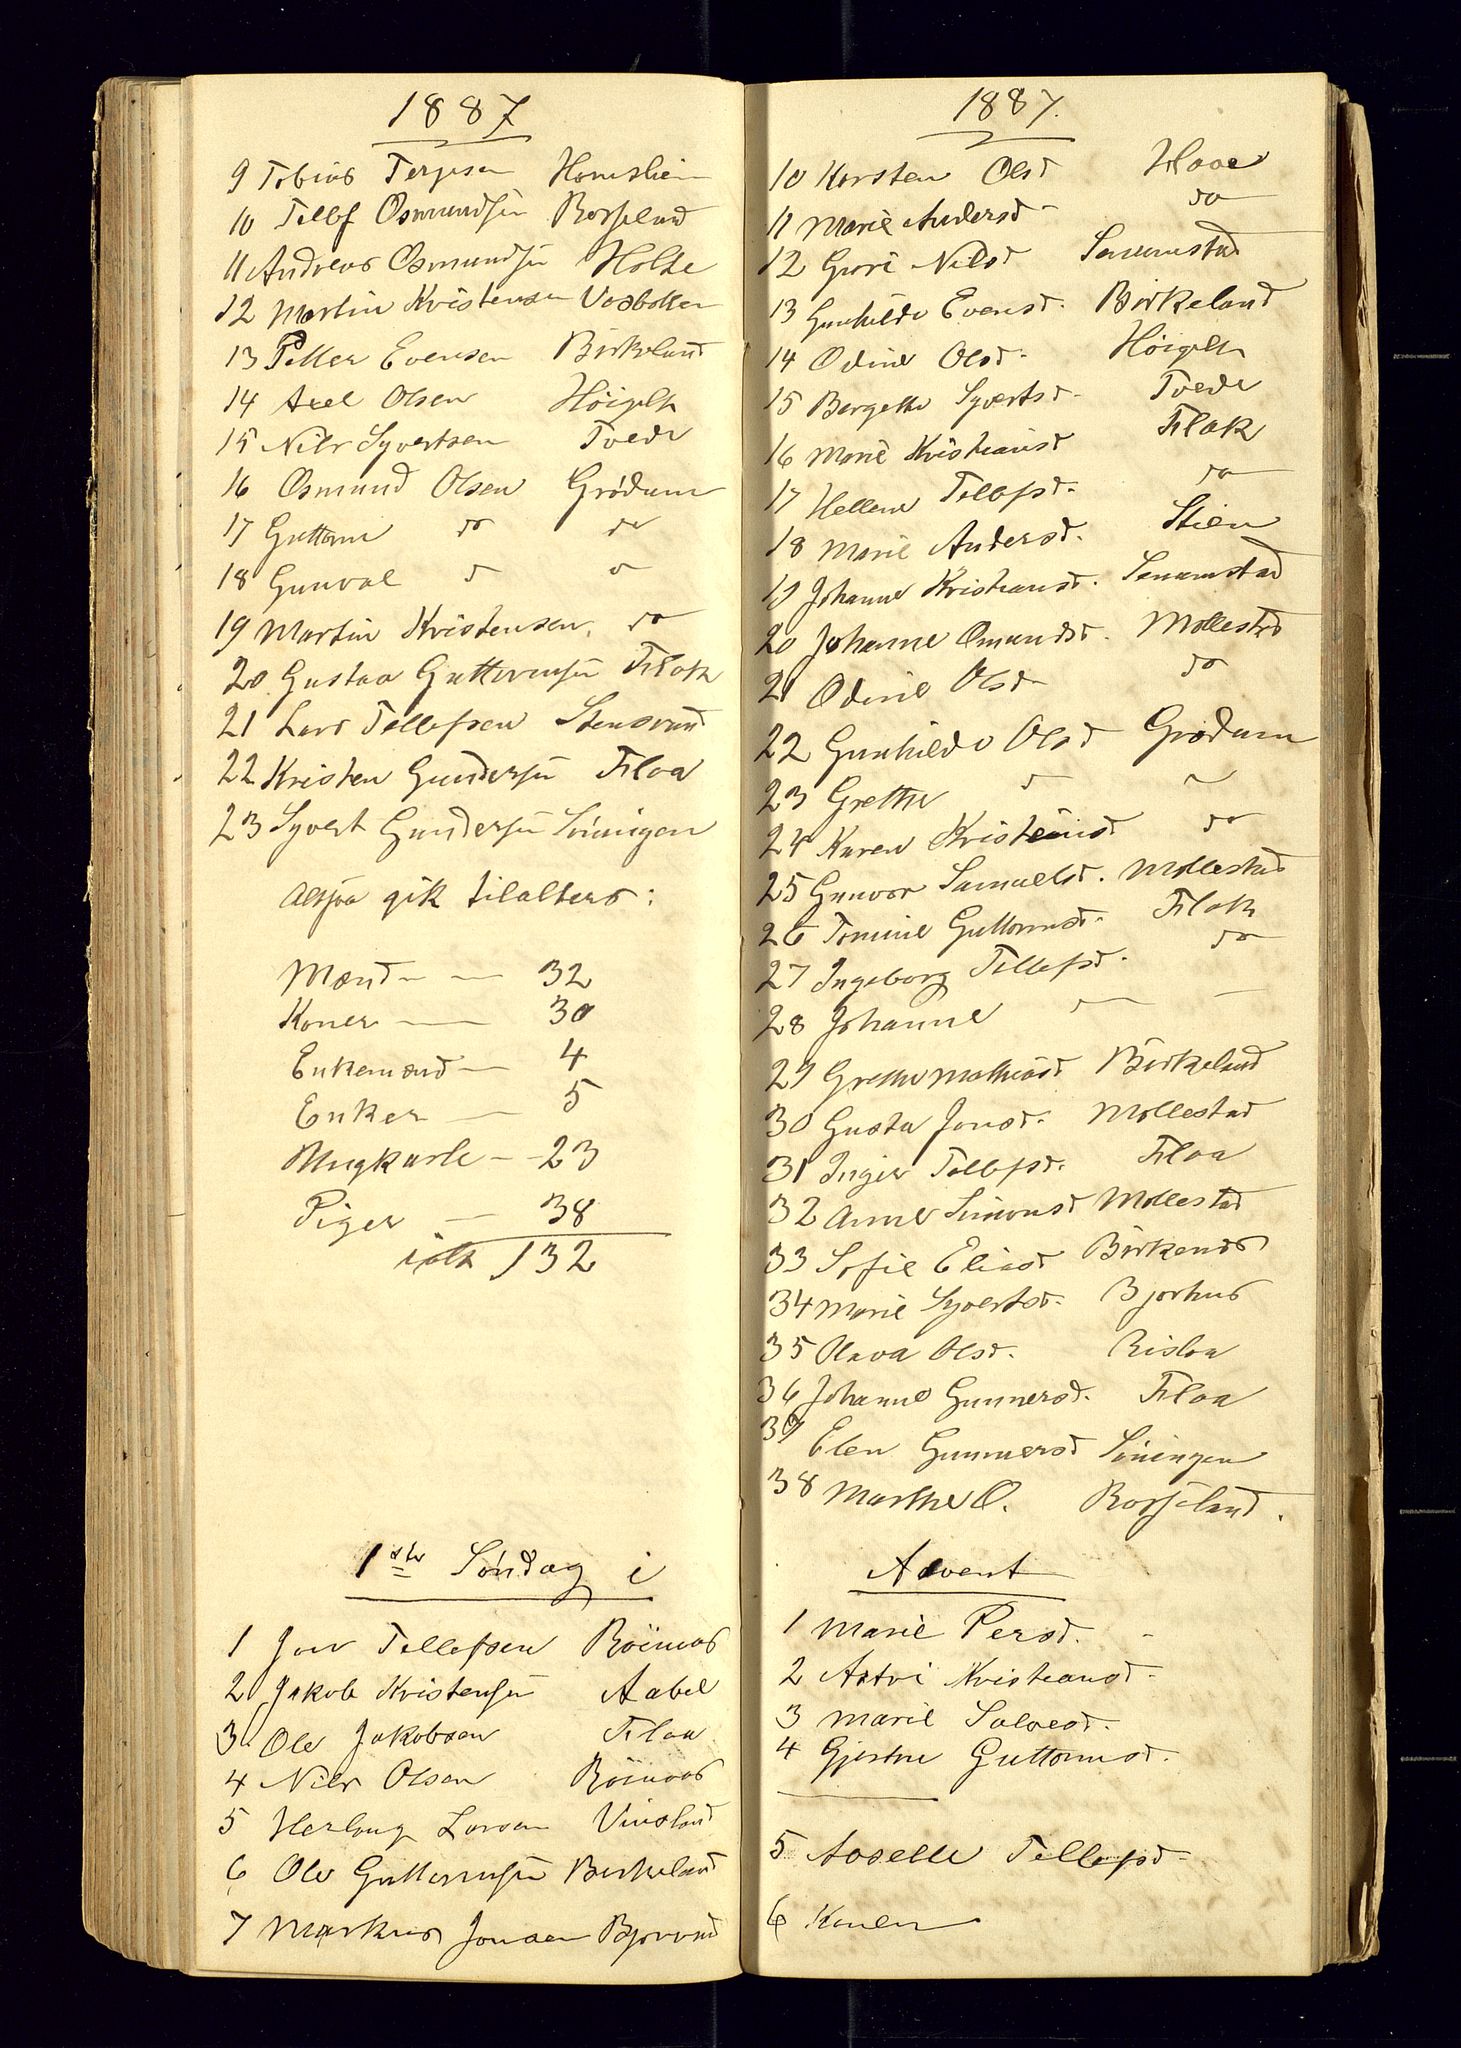 1887
9 Tobias Terjesen Homslien
10 Tellf Osmundsen Rosseland
11 Andreas Osmundsen Holte
12 Martin Kristensen Vasbotten
13 Petter Evensen Birkeland
14 Axel Olsen Høigilt
15 Nils Syvertsen Tvede
16 Osmund Olsen Grødum
17 Guttorm do do
18 Gunval
19 Martin Kristensen. do
20 Gustav Guttormsen Flak
21 Lars Tellefsen Stensvand
22 Kristen Gundersen Flaa
23 Syvert Gundersen Søningen
altsaa gik tilalters:
Mænd — 32
Koner — 30
Enkemænd — 4
Enker — 5
Ungkarle — 23
Piger — 38
ialt 132
1ste Søndag i
1 Jens Tellefsen Röinaas
2 Jakob Kristensen Aabel
3 Ole Jakobsen Flaa
4 Nils Olsen Röinaas
5 Herlaug Larsen Vinsland
6 Ole Guttormsen Birkeland
7 Markus Jonsen Bjorvand
1887.
10 Karsten Olsd Haae
11 Marie Andersd do
12 Guri Nilsd Senumstad
13 Gunhilde Evensd. Birkeland
14 Odine Olsd. Høigilt
15 Bergethe Syvertsd. Tvede
16 Marie Kristiansd Flak
17 Hellene Tellefsd. do
18 Marie Andersd. Stien
19 Johanne Kristiansd. Senumstad
20 Johanne Omundsd. Mollestad
21 Odine Olsd do
22 Gunhilde Olsd Grødum
23 Grethe
24 Karen Kristensd do
25 Gunvor Samuelsd. Mollestad
26 Tomine Guttormsd. Flak
27 Ingeborg Tellefsd. do
28 Johanne
29 Grethe Mathiasd Birkeland
30 Gusta Jonsd. Mollestad
31 Inger Tellefsd. Flaa
32 Anne Simonsd Mollestad
33 Sofie Eliasd Birkenes
34 Marie Syvertsd. Bjorhus
35 Olava Olsd. Rislaa
36 Johanne Gunnersd. Flaa
37 Elen Gunnersd Søningen
38 Marthe O. Rosseland.
Advent
1 Marie Persd.
2 Astri Kristiansd.
3 Marie Salvesd.
4 Gjertrue Guttormsd.
5 Aaselle Tellefsd.
6 Konen